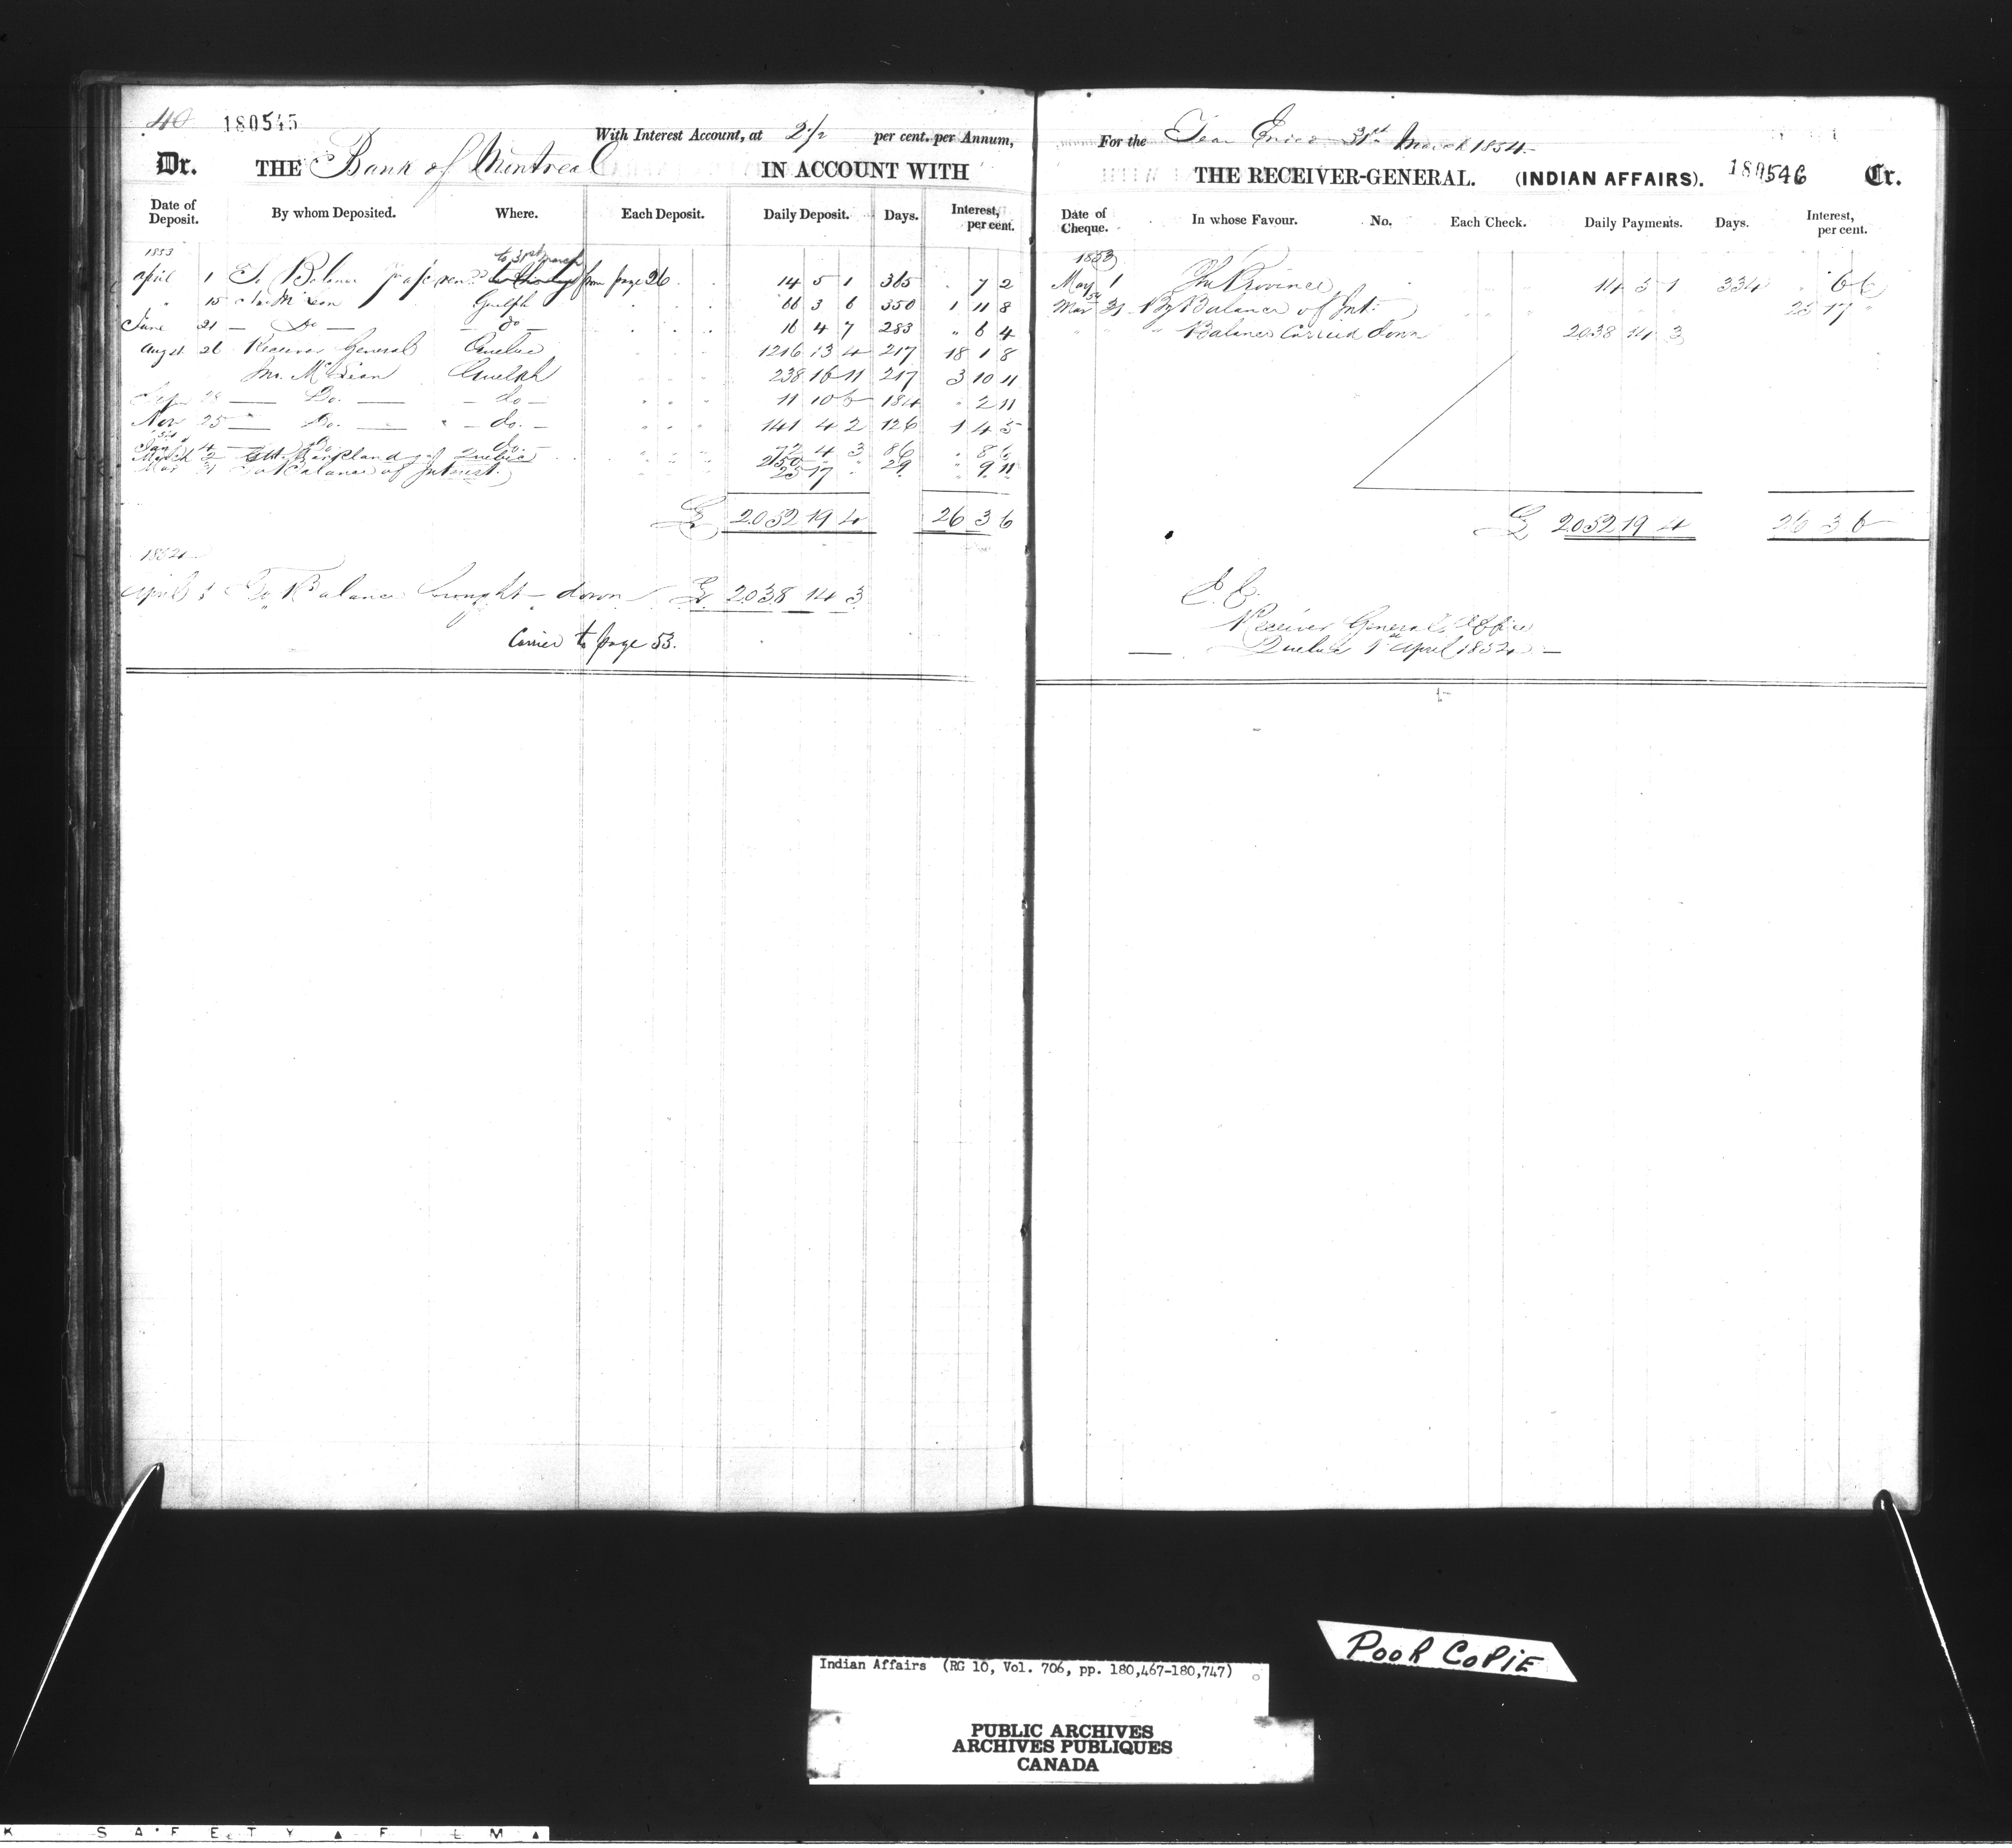 40 180545
With Interest Account, at 2 1/2 per cent. per Annum,
Dr. THE Bank of Montreal IN ACCOUNT WITH
Date of Deposit. By whom Deposited. Where. Each Deposit. Daily Deposit. Days. Interest, per cent.
1853 to 31st March
April 1 To Balance from page 26 14 5 1 365 " 7 2
" 15 Guelph 66 3 6 350 1 11 8
June 21 — Do — — do — 16 4 7 283 " 6 4
Augst 26 Receiver General Quebec 1216 13 4 217 18 1 8
Jno. McLean Guelph 238 16 11 217 3 10 11
Sepr 28 — Do. — — do — 11 10 6 184 " 2 11
Nov 25 — Do. — " — do. — 141 4 2 126 1 4 5
Jan 4 — Do — do. — 72 4 3 86 " 8 6
March 2 Quebec 250 29 " 9 11
Mar 31 To Balance of Interest. 25 17 "
£ 2052 19 4 26 3 6
1854
April 1 To Balance brought down £ 2038 14 3
Carried to page 53.
For the Year Ended 31st March 1854
THE RECEIVER-GENERAL. (INDIAN AFFAIRS). 180546 Cr.
Date of Cheque. In whose Favour. No. Each Check. Daily Payments. Days. Interest, per cent.
1853
May 1 The Province 14 5 1 334 " 6 6
54
Mar 31 By Balance of Int: 25 17 "
" " " Balance Carried down 2038 14 3
£ 2052 19 4 26 3 6
E.E.
Receiver General's Office
Quebec 1st April 1854 —
Indian Affairs (RG 10, Vol. 706, pp. 180,467-180,747)
POOR COPIE
PUBLIC ARCHIVES
ARCHIVES PUBLIQUES
CANADA
K SAFETY ▲ FILM ▲